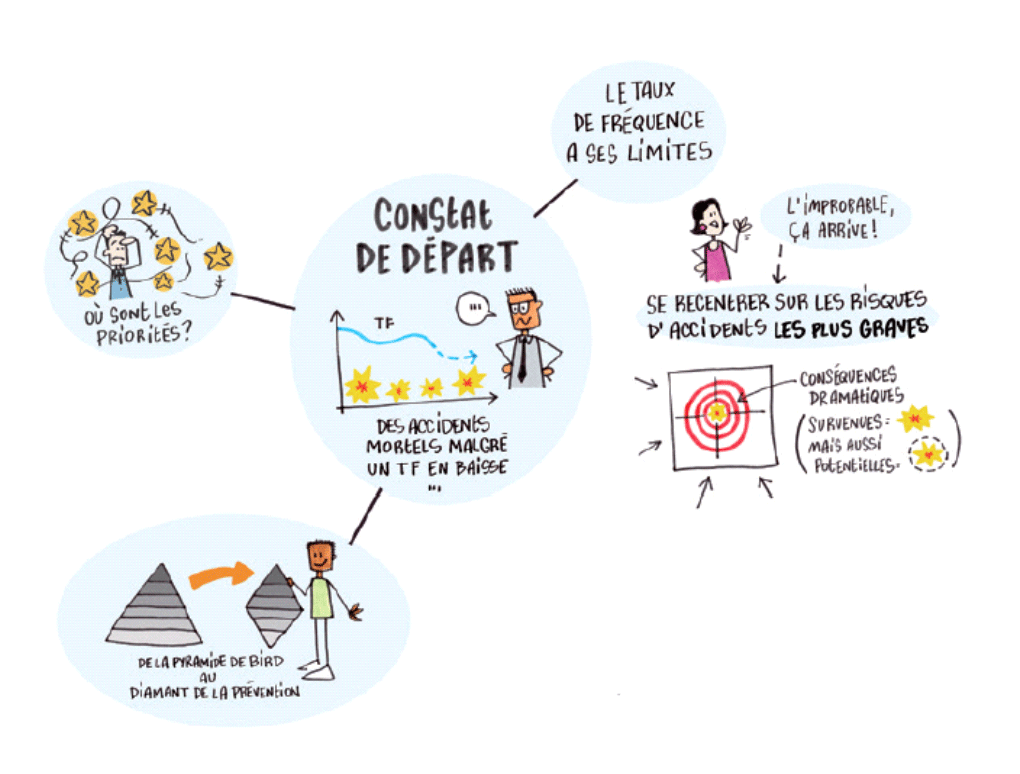 LE TAUX
DE FRÉQUENCE
A SES LIMITES
CONSTAT
DE DÉPART
TF
...
DES ACCIDENTS
MORTELS MALGRÉ
UN TF EN BAISSE
...
OÙ SONT LES
PRIORITÉS?
L'IMPROBABLE,
ÇA ARRIVE!
SE RECENTRER SUR LES RISQUES
D'ACCIDENTS LES PLUS GRAVES
CONSÉQUENCES
DRAMATIQUES
(SURVENUES=
MAIS AUSSI
POTENTIELLES= )
DE LA PYRAMIDE DE BIRD
AU
DIAMANT DE LA PRÉVENTION